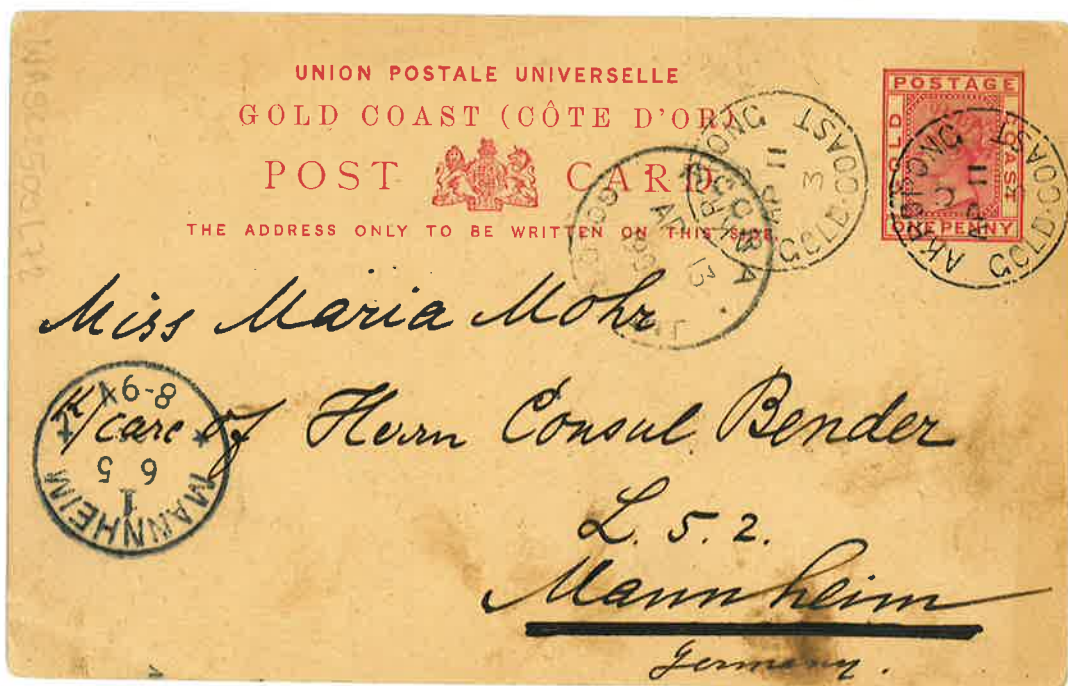 UNION POSTALE UNIVERSELLE
GOLD COAST (CÔTE D'OR)
POST CARD
THE ADDRESS ONLY TO BE WRITTEN ON THIS SIDE.
POSTAGE
GOLD COAST
ONE PENNY
AKROPONG
C
AP 11
GOLD·COAST
AKROPONG
AP 11
3
GOLD·COAST
ACCRA
AP 13
Miss Maria Mohr
care of Herrn Consul Bender
L. 5. 2.
Mannheim
Germany.
MANNHEIM
1
6 5
8-9V